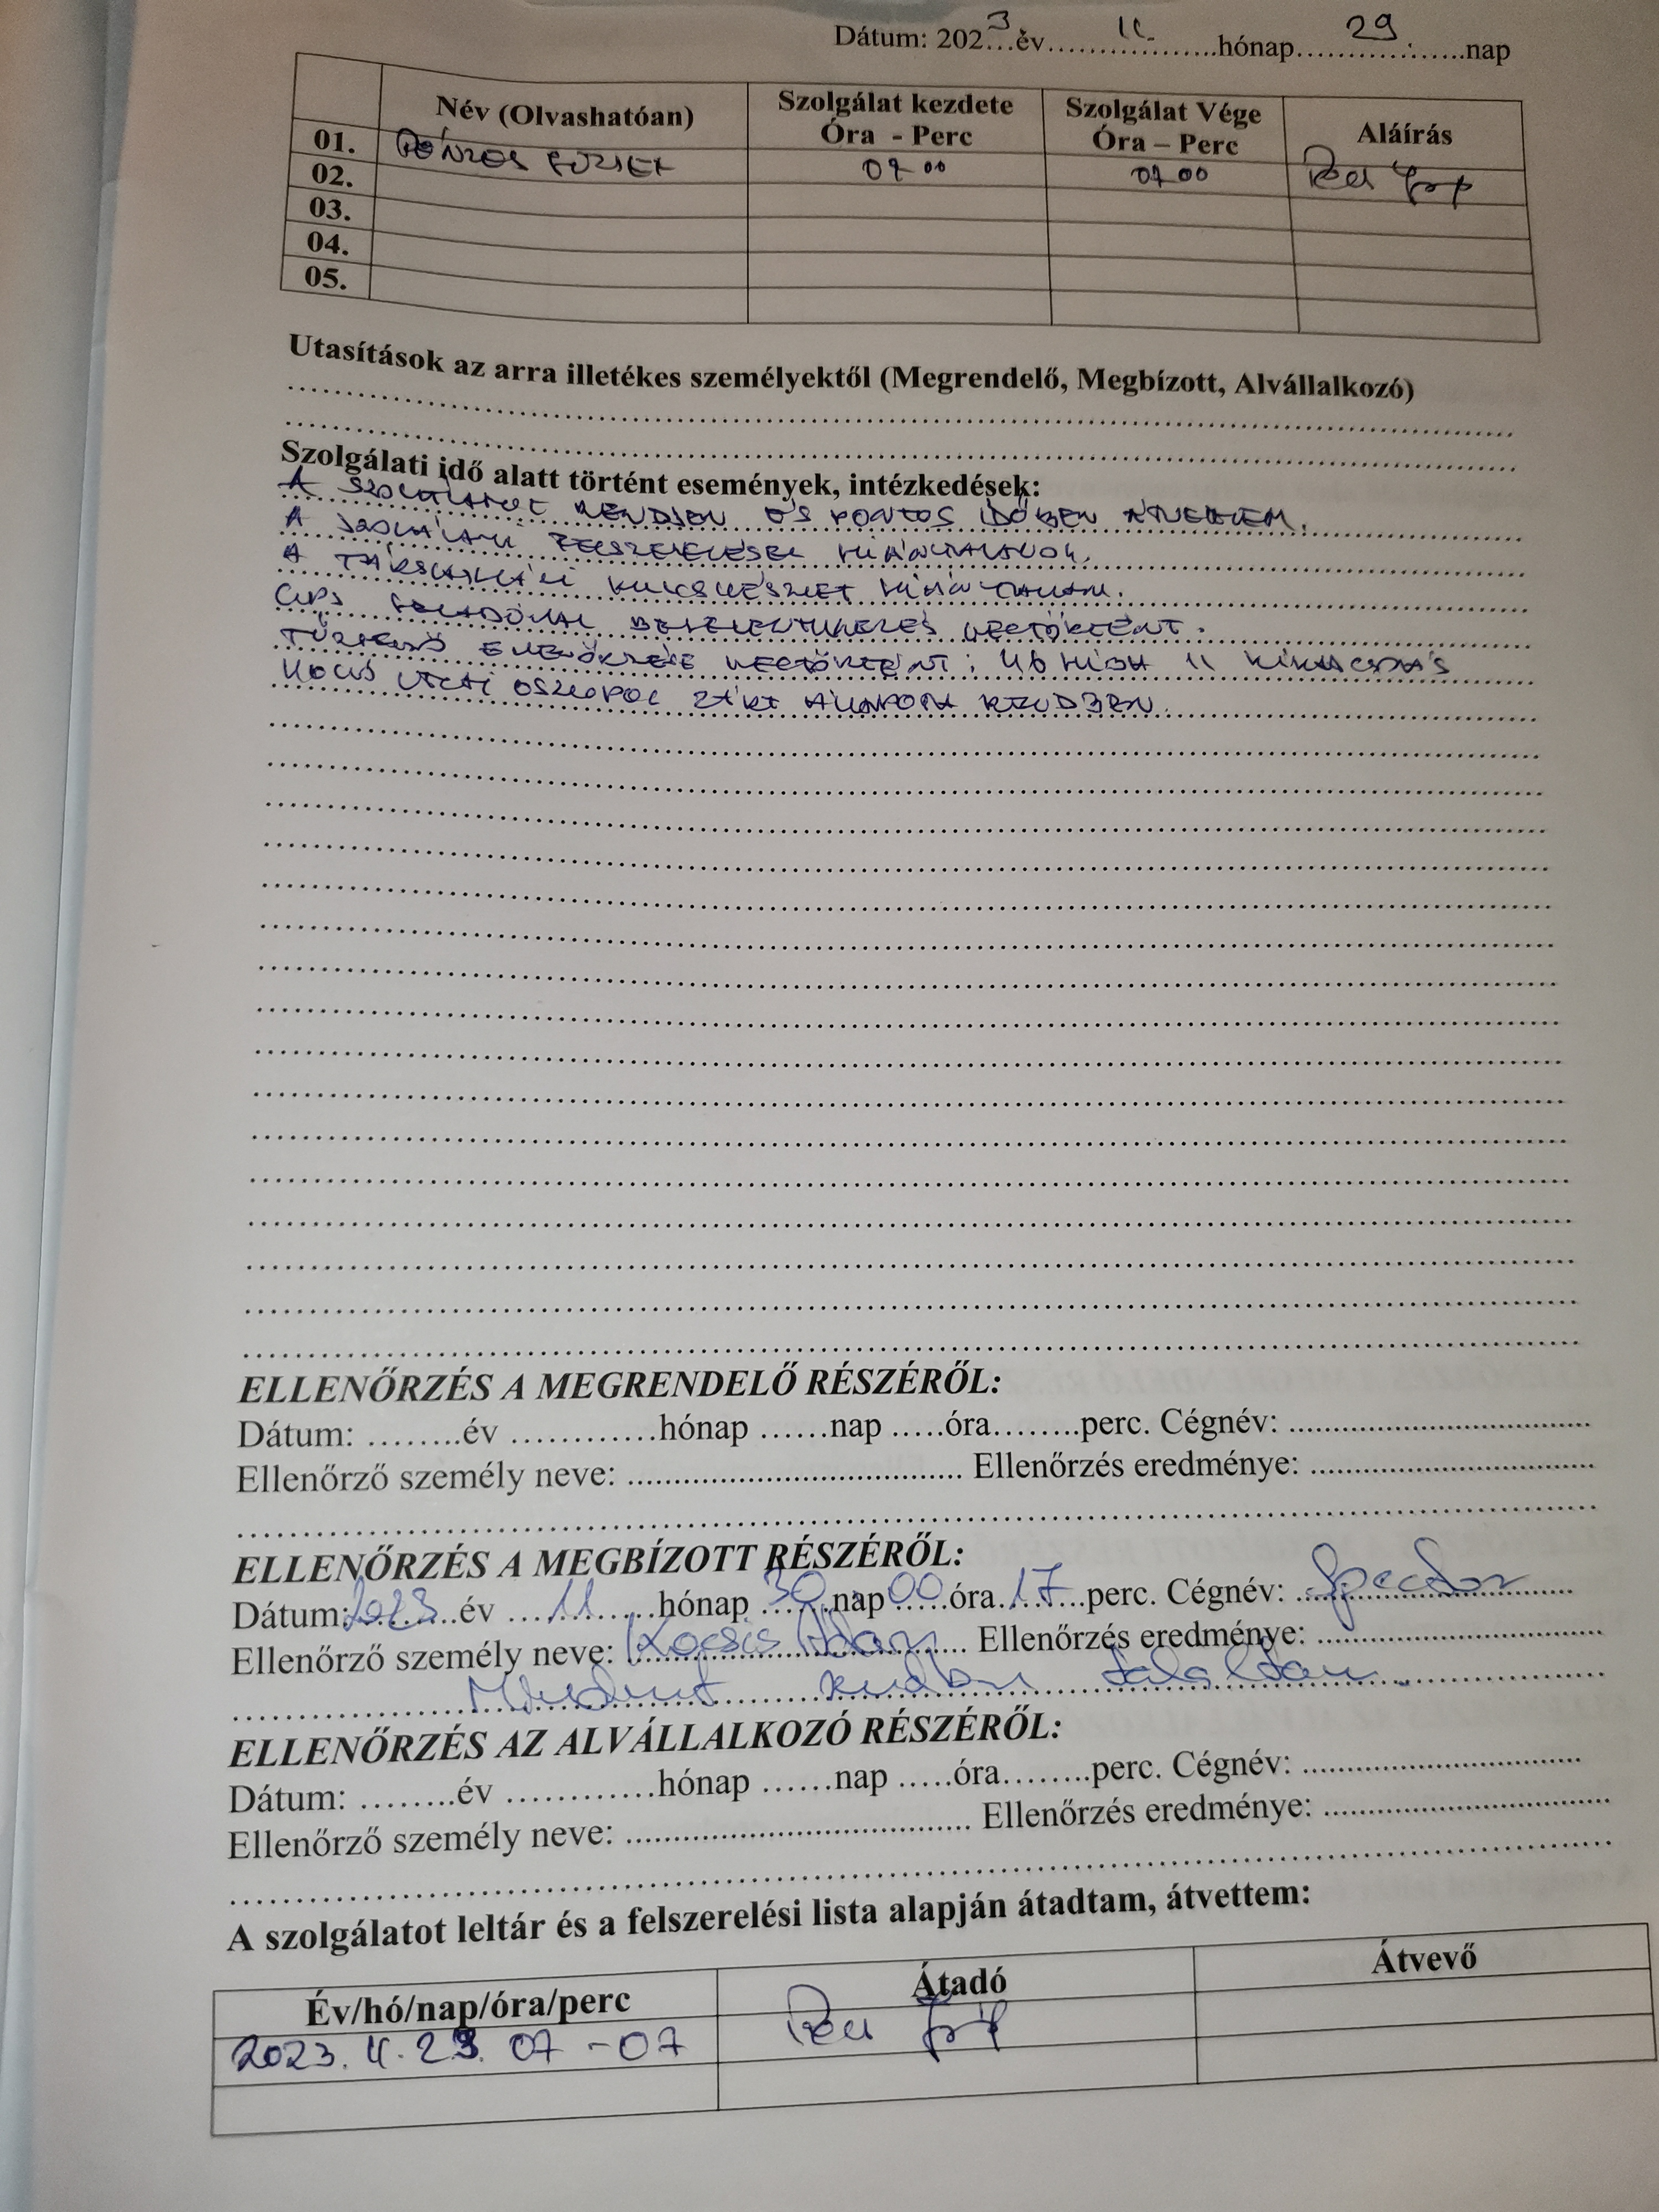 Dátum: 2023...év............11..........hónap......29......nap
Név (Olvashatóan) Szolgálat kezdete Óra - Perc Szolgálat Vége Óra – Perc Aláírás
01. PÉNZES JÓZSEF 07 00 07 00
02.
03.
04.
05.
Utasítások az arra illetékes személyektől (Megrendelő, Megbízott, Alvállalkozó)
Szolgálati idő alatt történt események, intézkedések:
A SZOLGÁLATOT RENDBEN ÉS PONTOS IDŐBEN ÁTVETTEM.
A SZOLGÁLATI FELSZERELÉSEK HIÁNYTALANOK.
A TÁRSASHÁZI KULCSKÉSZLET HIÁNYTALAN.
GPS BEJELENTKEZÉS MEGTÖRTÉNT.
ELLENŐRZÉSE MEGTÖRTÉNT:
UTCAI OSZLOPOK ZÁRT ÁLLAPOTA RENDBEN.
ELLENŐRZÉS A MEGRENDELŐ RÉSZÉRŐL:
Dátum: ........év ............hónap ......nap .....óra........perc. Cégnév: ....................
Ellenőrző személy neve: .................... Ellenőrzés eredménye: ....................
ELLENŐRZÉS A MEGBÍZOTT RÉSZÉRŐL:
Dátum: 2023 év 11 hónap 30 nap 00 óra 17 perc. Cégnév:
Ellenőrző személy neve: Kocsis Ádám Ellenőrzés eredménye:
Mindent rendben találtam.
ELLENŐRZÉS AZ ALVÁLLALKOZÓ RÉSZÉRŐL:
Dátum: ........év ............hónap ......nap .....óra........perc. Cégnév: ....................
Ellenőrző személy neve: .................... Ellenőrzés eredménye: ....................
A szolgálatot leltár és a felszerelési lista alapján átadtam, átvettem:
Év/hó/nap/óra/perc Átadó Átvevő
2023. 11. 29. 07 - 07